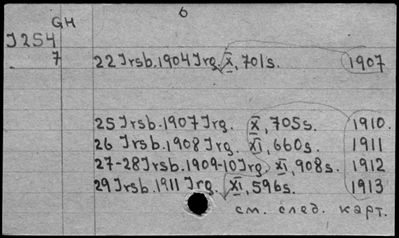 6
GH
J254
7
22 Jrsb. 1904 Jrg. X, 701s. 1907
25 Jrsb. 1907 Jrg. X, 705s. 1910.
26 Jrsb. 1908 Jrg. XI, 660s. 1911
27-28 Jrsb. 1909-10 Jrg. XI, 908s. 1912
29 Jrsb. 1911 Jrg. XI, 596s. 1913
см. след. карт.